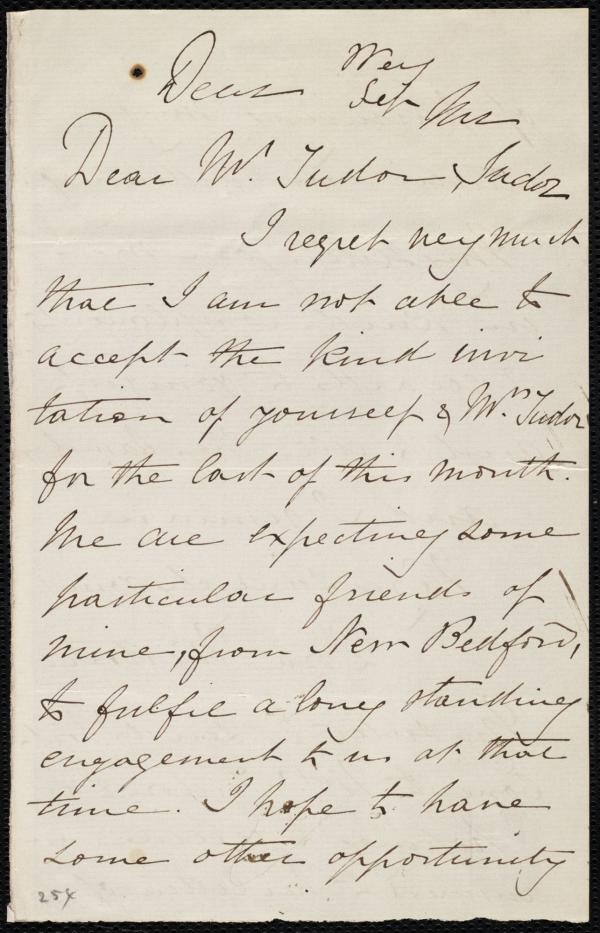 Dear Wey
Sep Mr
Dear Mr. Tudor Tudor
I regret very much
that I am not able to
accept the kind invi
tation of yourself & Mrs Tudor
for the last of this month.
We are expecting some
particular friends of
mine, from New Bedford,
to fulfil a long standing
engagement to us at that
time. I hope to have
some other opportunity
254